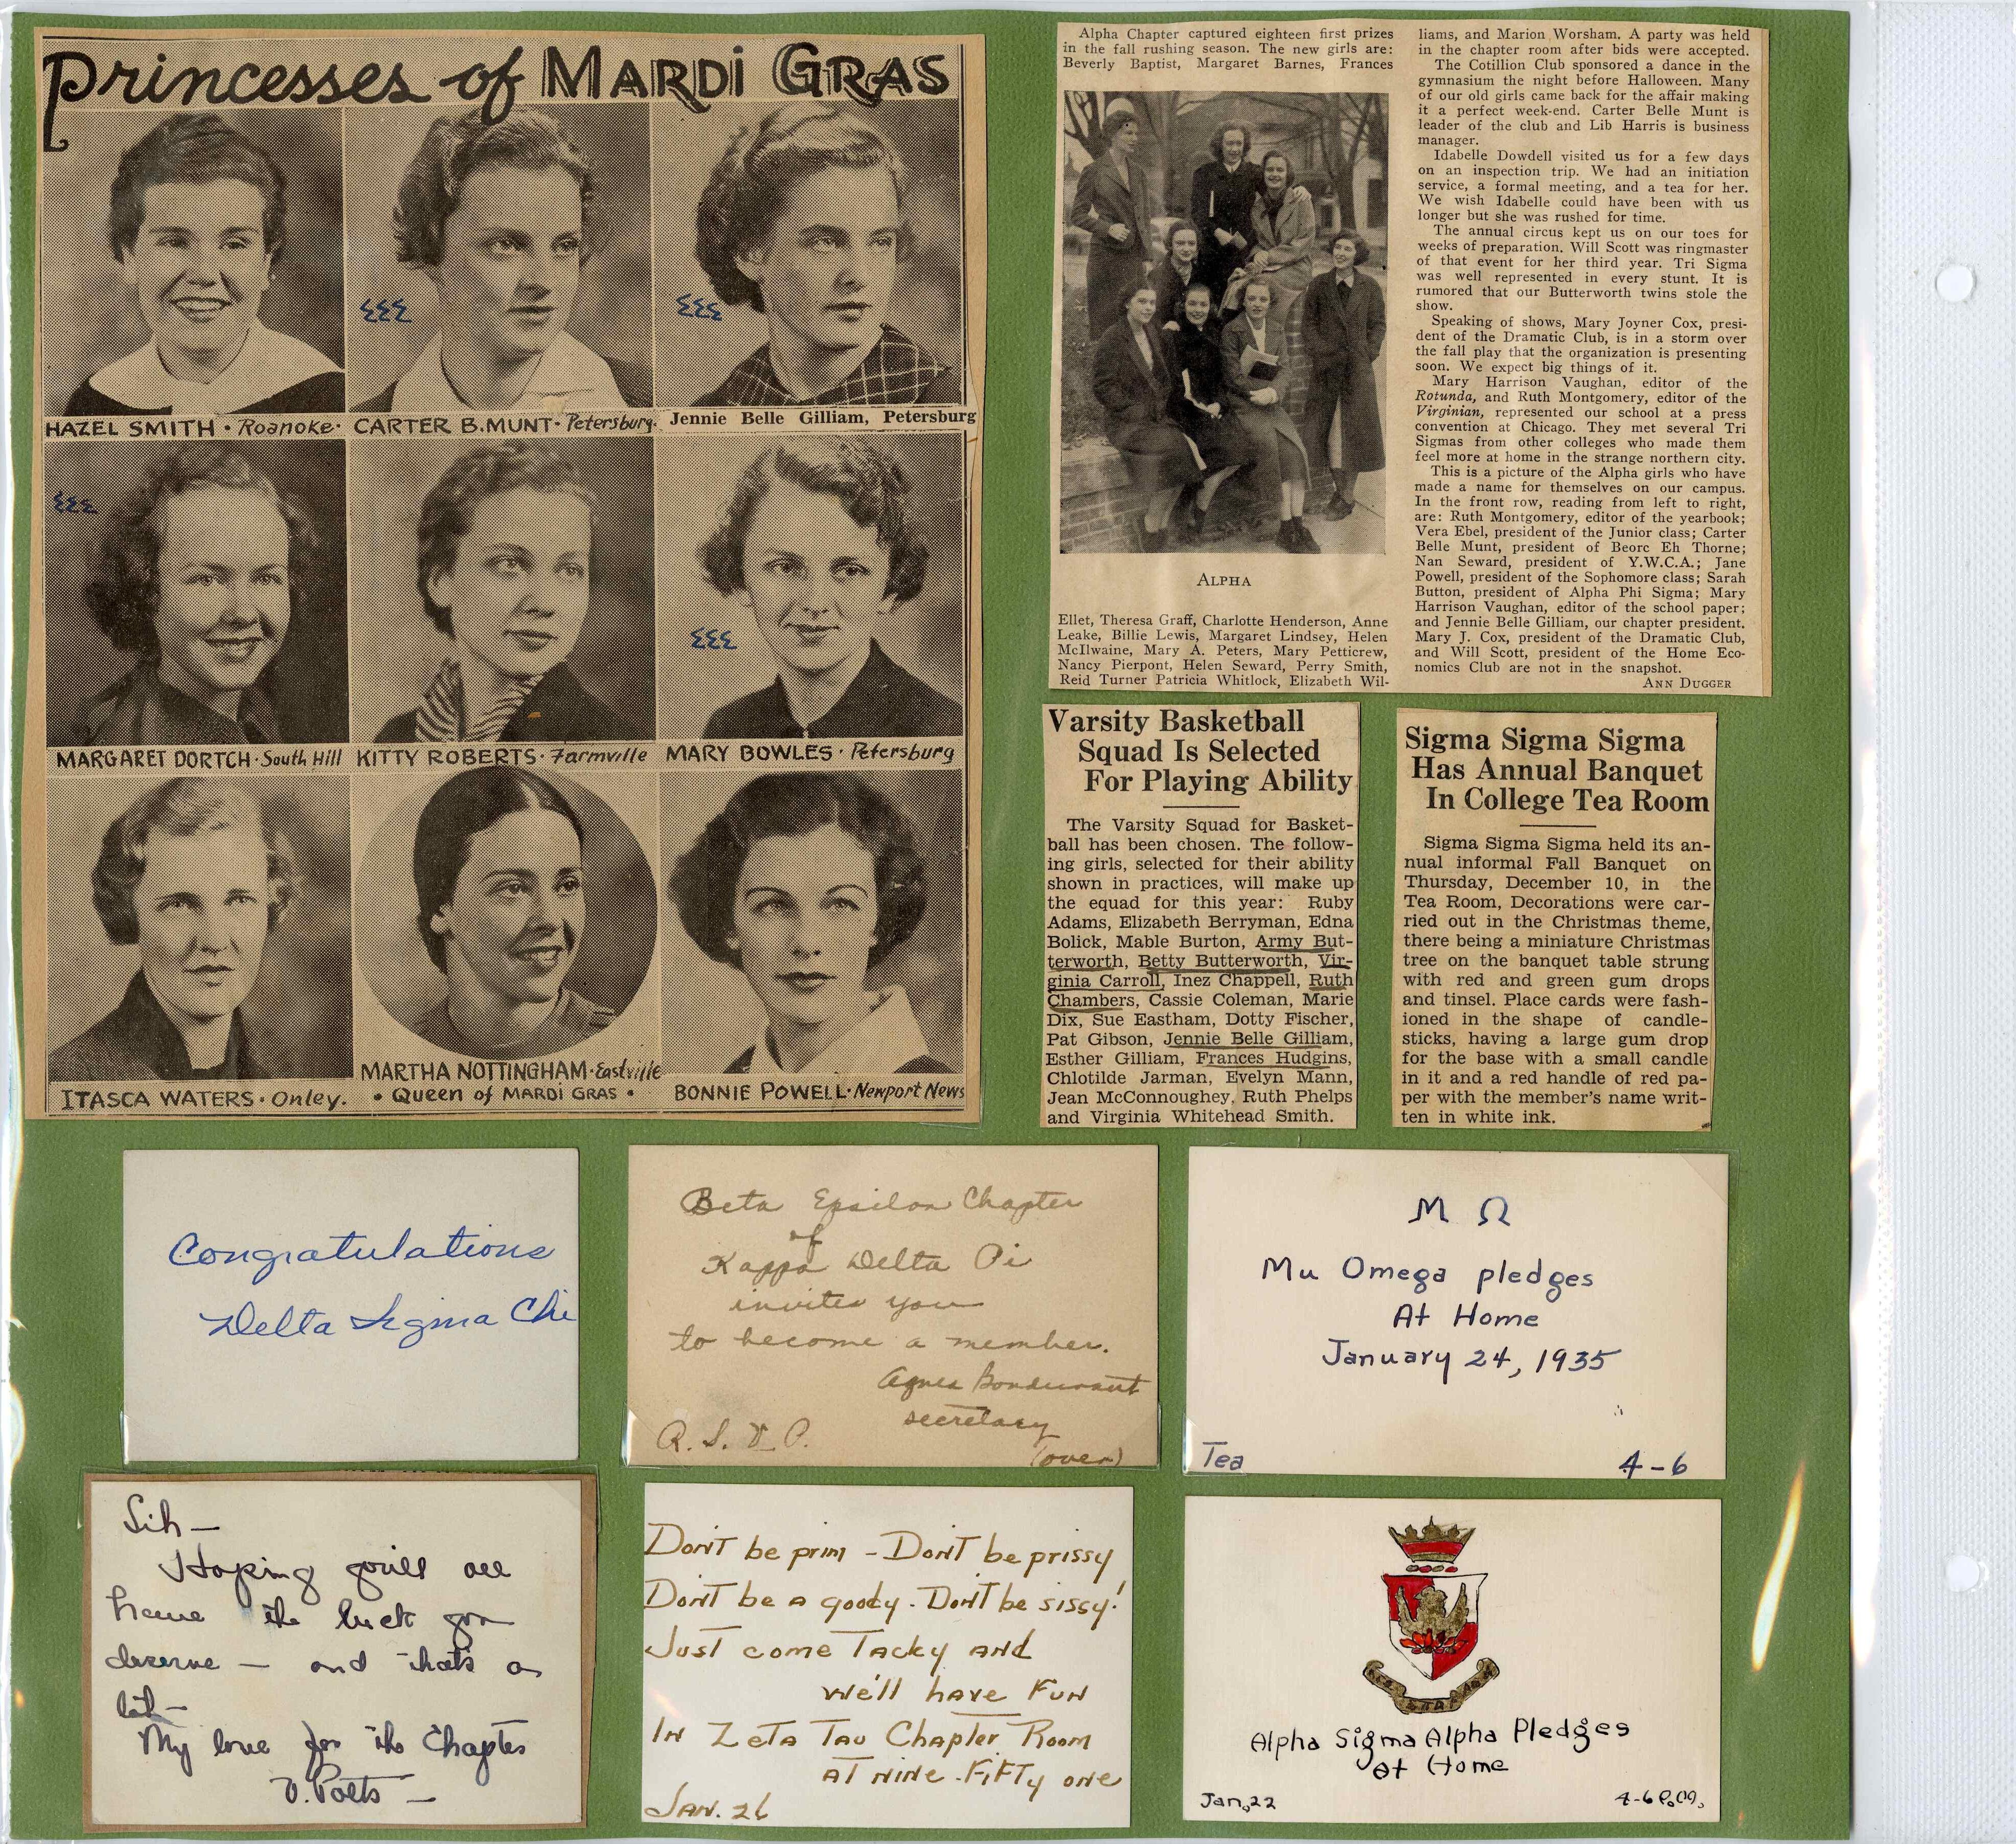 Princesses of MARDI GRAS
HAZEL SMITH · Roanoke · CARTER B. MUNT · Petersburg · Jennie Belle Gilliam, Petersburg
ΣΣΣ
ΣΣΣ
ΣΣΣ
ΣΣΣ
MARGARET DORTCH · South Hill KITTY ROBERTS · Farmville MARY BOWLES · Petersburg
MARTHA NOTTINGHAM · Eastville
ITASCA WATERS · Onley. • Queen of MARDI GRAS • BONNIE POWELL · Newport News
Alpha Chapter captured eighteen first prizes
in the fall rushing season. The new girls are:
Beverly Baptist, Margaret Barnes, Frances
ALPHA
Ellet, Theresa Graff, Charlotte Henderson, Anne
Leake, Billie Lewis, Margaret Lindsey, Helen
McIlwaine, Mary A. Peters, Mary Petticrew,
Nancy Pierpont, Helen Seward, Perry Smith,
Reid Turner Patricia Whitlock, Elizabeth Wil-
liams, and Marion Worsham. A party was held
in the chapter room after bids were accepted.
The Cotillion Club sponsored a dance in the
gymnasium the night before Halloween. Many
of our old girls came back for the affair making
it a perfect week-end. Carter Belle Munt is
leader of the club and Lib Harris is business
manager.
Idabelle Dowdell visited us for a few days
on an inspection trip. We had an initiation
service, a formal meeting, and a tea for her.
We wish Idabelle could have been with us
longer but she was rushed for time.
The annual circus kept us on our toes for
weeks of preparation. Will Scott was ringmaster
of that event for her third year. Tri Sigma
was well represented in every stunt. It is
rumored that our Butterworth twins stole the
show.
Speaking of shows, Mary Joyner Cox, presi-
dent of the Dramatic Club, is in a storm over
the fall play that the organization is presenting
soon. We expect big things of it.
Mary Harrison Vaughan, editor of the
Rotunda, and Ruth Montgomery, editor of the
Virginian, represented our school at a press
convention at Chicago. They met several Tri
Sigmas from other colleges who made them
feel more at home in the strange northern city.
This is a picture of the Alpha girls who have
made a name for themselves on our campus.
In the front row, reading from left to right,
are: Ruth Montgomery, editor of the yearbook;
Vera Ebel, president of the Junior class; Carter
Belle Munt, president of Beorc Eh Thorne;
Nan Seward, president of Y.W.C.A.; Jane
Powell, president of the Sophomore class; Sarah
Button, president of Alpha Phi Sigma; Mary
Harrison Vaughan, editor of the school paper;
and Jennie Belle Gilliam, our chapter president.
Mary J. Cox, president of the Dramatic Club,
and Will Scott, president of the Home Eco-
nomics Club are not in the snapshot.
ANN DUGGER
Varsity Basketball
Squad Is Selected
For Playing Ability
The Varsity Squad for Basket-
ball has been chosen. The follow-
ing girls, selected for their ability
shown in practices, will make up
the equad for this year: Ruby
Adams, Elizabeth Berryman, Edna
Bolick, Mable Burton, Army But-
terworth, Betty Butterworth, Vir-
ginia Carroll, Inez Chappell, Ruth
Chambers, Cassie Coleman, Marie
Dix, Sue Eastham, Dotty Fischer,
Pat Gibson, Jennie Belle Gilliam,
Esther Gilliam, Frances Hudgins,
Chlotilde Jarman, Evelyn Mann,
Jean McConnoughey, Ruth Phelps
and Virginia Whitehead Smith.
Sigma Sigma Sigma
Has Annual Banquet
In College Tea Room
Sigma Sigma Sigma held its an-
nual informal Fall Banquet on
Thursday, December 10, in the
Tea Room, Decorations were car-
ried out in the Christmas theme,
there being a miniature Christmas
tree on the banquet table strung
with red and green gum drops
and tinsel. Place cards were fash-
ioned in the shape of candle-
sticks, having a large gum drop
for the base with a small candle
in it and a red handle of red pa-
per with the member's name writ-
ten in white ink.
Congratulations
Delta Sigma Chi
Beta Epsilon Chapter
of
Kappa Delta Pi
invites you
to become a member.
Agnes Bondurant
secretary
R. S. V. P.
(over)
Μ Ω
Mu Omega pledges
At Home
January 24, 1935
Tea 4-6
Sih —
Hoping you'll all
have the luck you
deserve — and that's a
lot —
My love for the Chapter
V. Potts —
Don't be prim - Don't be prissy
Don't be a goody. Don't be sissy!
Just come Tacky and
We'll have Fun
In Zeta Tau Chapter Room
At nine-Fifty one
Jan. 26
Alpha Sigma Alpha Pledges
At Home
Jan. 22 4-6 P.M.